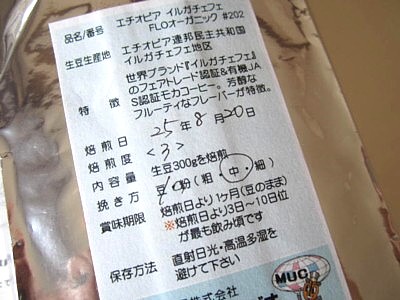 品名/番号 エチオピア イルガチェフェ
FLOオーガニック #202
生豆生産地 エチオピア連邦民主共和国
イルガチェフェ地区
特 徴 世界ブランド『イルガチェフェ』
のフェアトレード認証&有機JA
S認証モカコーヒー。芳醇な
フルーティなフレーバーが特徴。
焙煎日 25 年 8 月 20 日
焙煎度 <3>
内容量 生豆300gを焙煎
挽き方 豆・粉(粗・中・細)
賞味期限 焙煎日より1ヶ月(豆のまま)
※焙煎日より3日〜10日位
が最も飲み頃です
保存方法 直射日光・高温多湿を
避けて下さい
MUC
株式会社